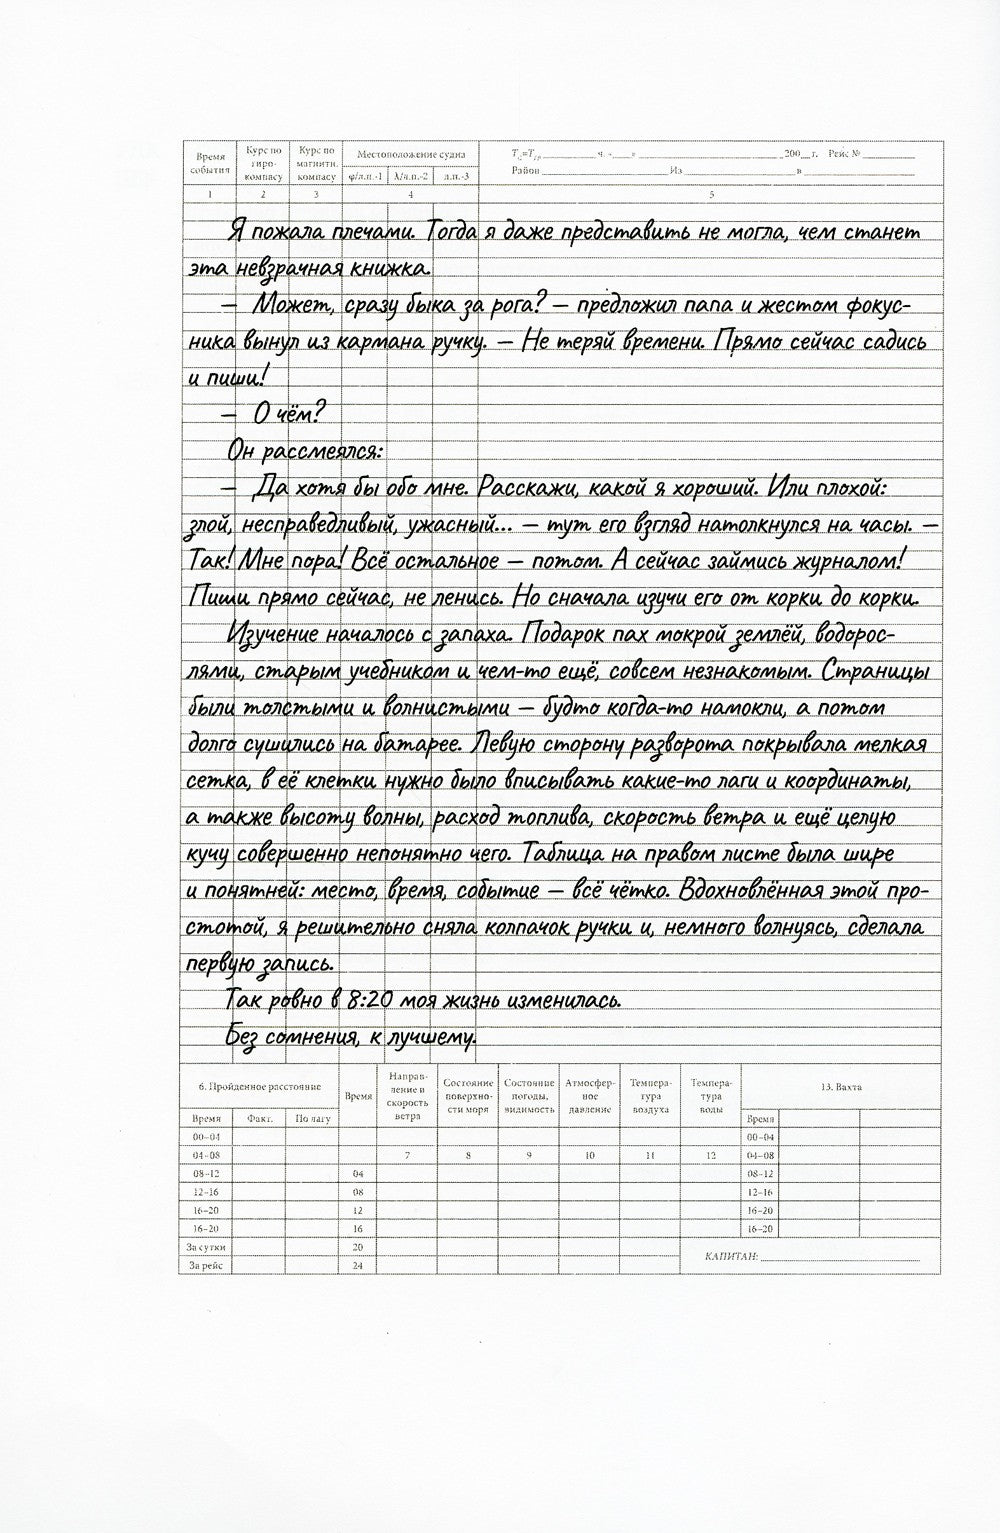 Время события
Курс по гиро- компасу
Курс по магнитн. компасу
Местоположение судна
φ/л.п.-1 λ/л.п.-2 л.п.-3
ч. 200 г. Рейс №
Район Из в
1 2 3 4 5
Я пожала плечами. Тогда я даже представить не могла, чем станет
эта невзрачная книжка.
— Может, сразу быка за рога? — предложил папа и жестом фокус-
ника вынул из кармана ручку. — Не теряй времени. Прямо сейчас садись
и пиши!
— О чём?
Он рассмеялся:
— Да хотя бы обо мне. Расскажи, какой я хороший. Или плохой:
злой, несправедливый, ужасный... — тут его взгляд натолкнулся на часы. —
Так! Мне пора! Всё остальное — потом. А сейчас займись журналом!
Пиши прямо сейчас, не ленись. Но сначала изучи его от корки до корки.
Изучение началось с запаха. Подарок пах мокрой землёй, водорос-
лями, старым учебником и чем-то ещё, совсем незнакомым. Страницы
были толстыми и волнистыми — будто когда-то намокли, а потом
долго сушились на батарее. Левую сторону разворота покрывала мелкая
сетка, в её клетки нужно было вписывать какие-то лаги и координаты,
а также высоту волны, расход топлива, скорость ветра и ещё целую
кучу совершенно непонятно чего. Таблица на правом листе была шире
и понятней: место, время, событие — всё чётко. Вдохновлённая этой про-
стотой, я решительно сняла колпачок ручки и, немного волнуясь, сделала
первую запись.
Так ровно в 8:20 моя жизнь изменилась.
Без сомнения, к лучшему.
6. Пройденное расстояние
Время
Направ- ление и скорость ветра
Состояние поверхно- сти моря
Состояние погоды, видимость
Атмосфер- ное давление
Темпера- тура воздуха
Темпера- тура воды
13. Вахта
Время Факт. По лагу Время
00–04 00–04
04–08 7 8 9 10 11 12 04–08
08–12 04 08–12
12–16 08 12–16
16–20 12 16–20
16–20 16 16–20
За сутки 20
За рейс 24
КАПИТАН: